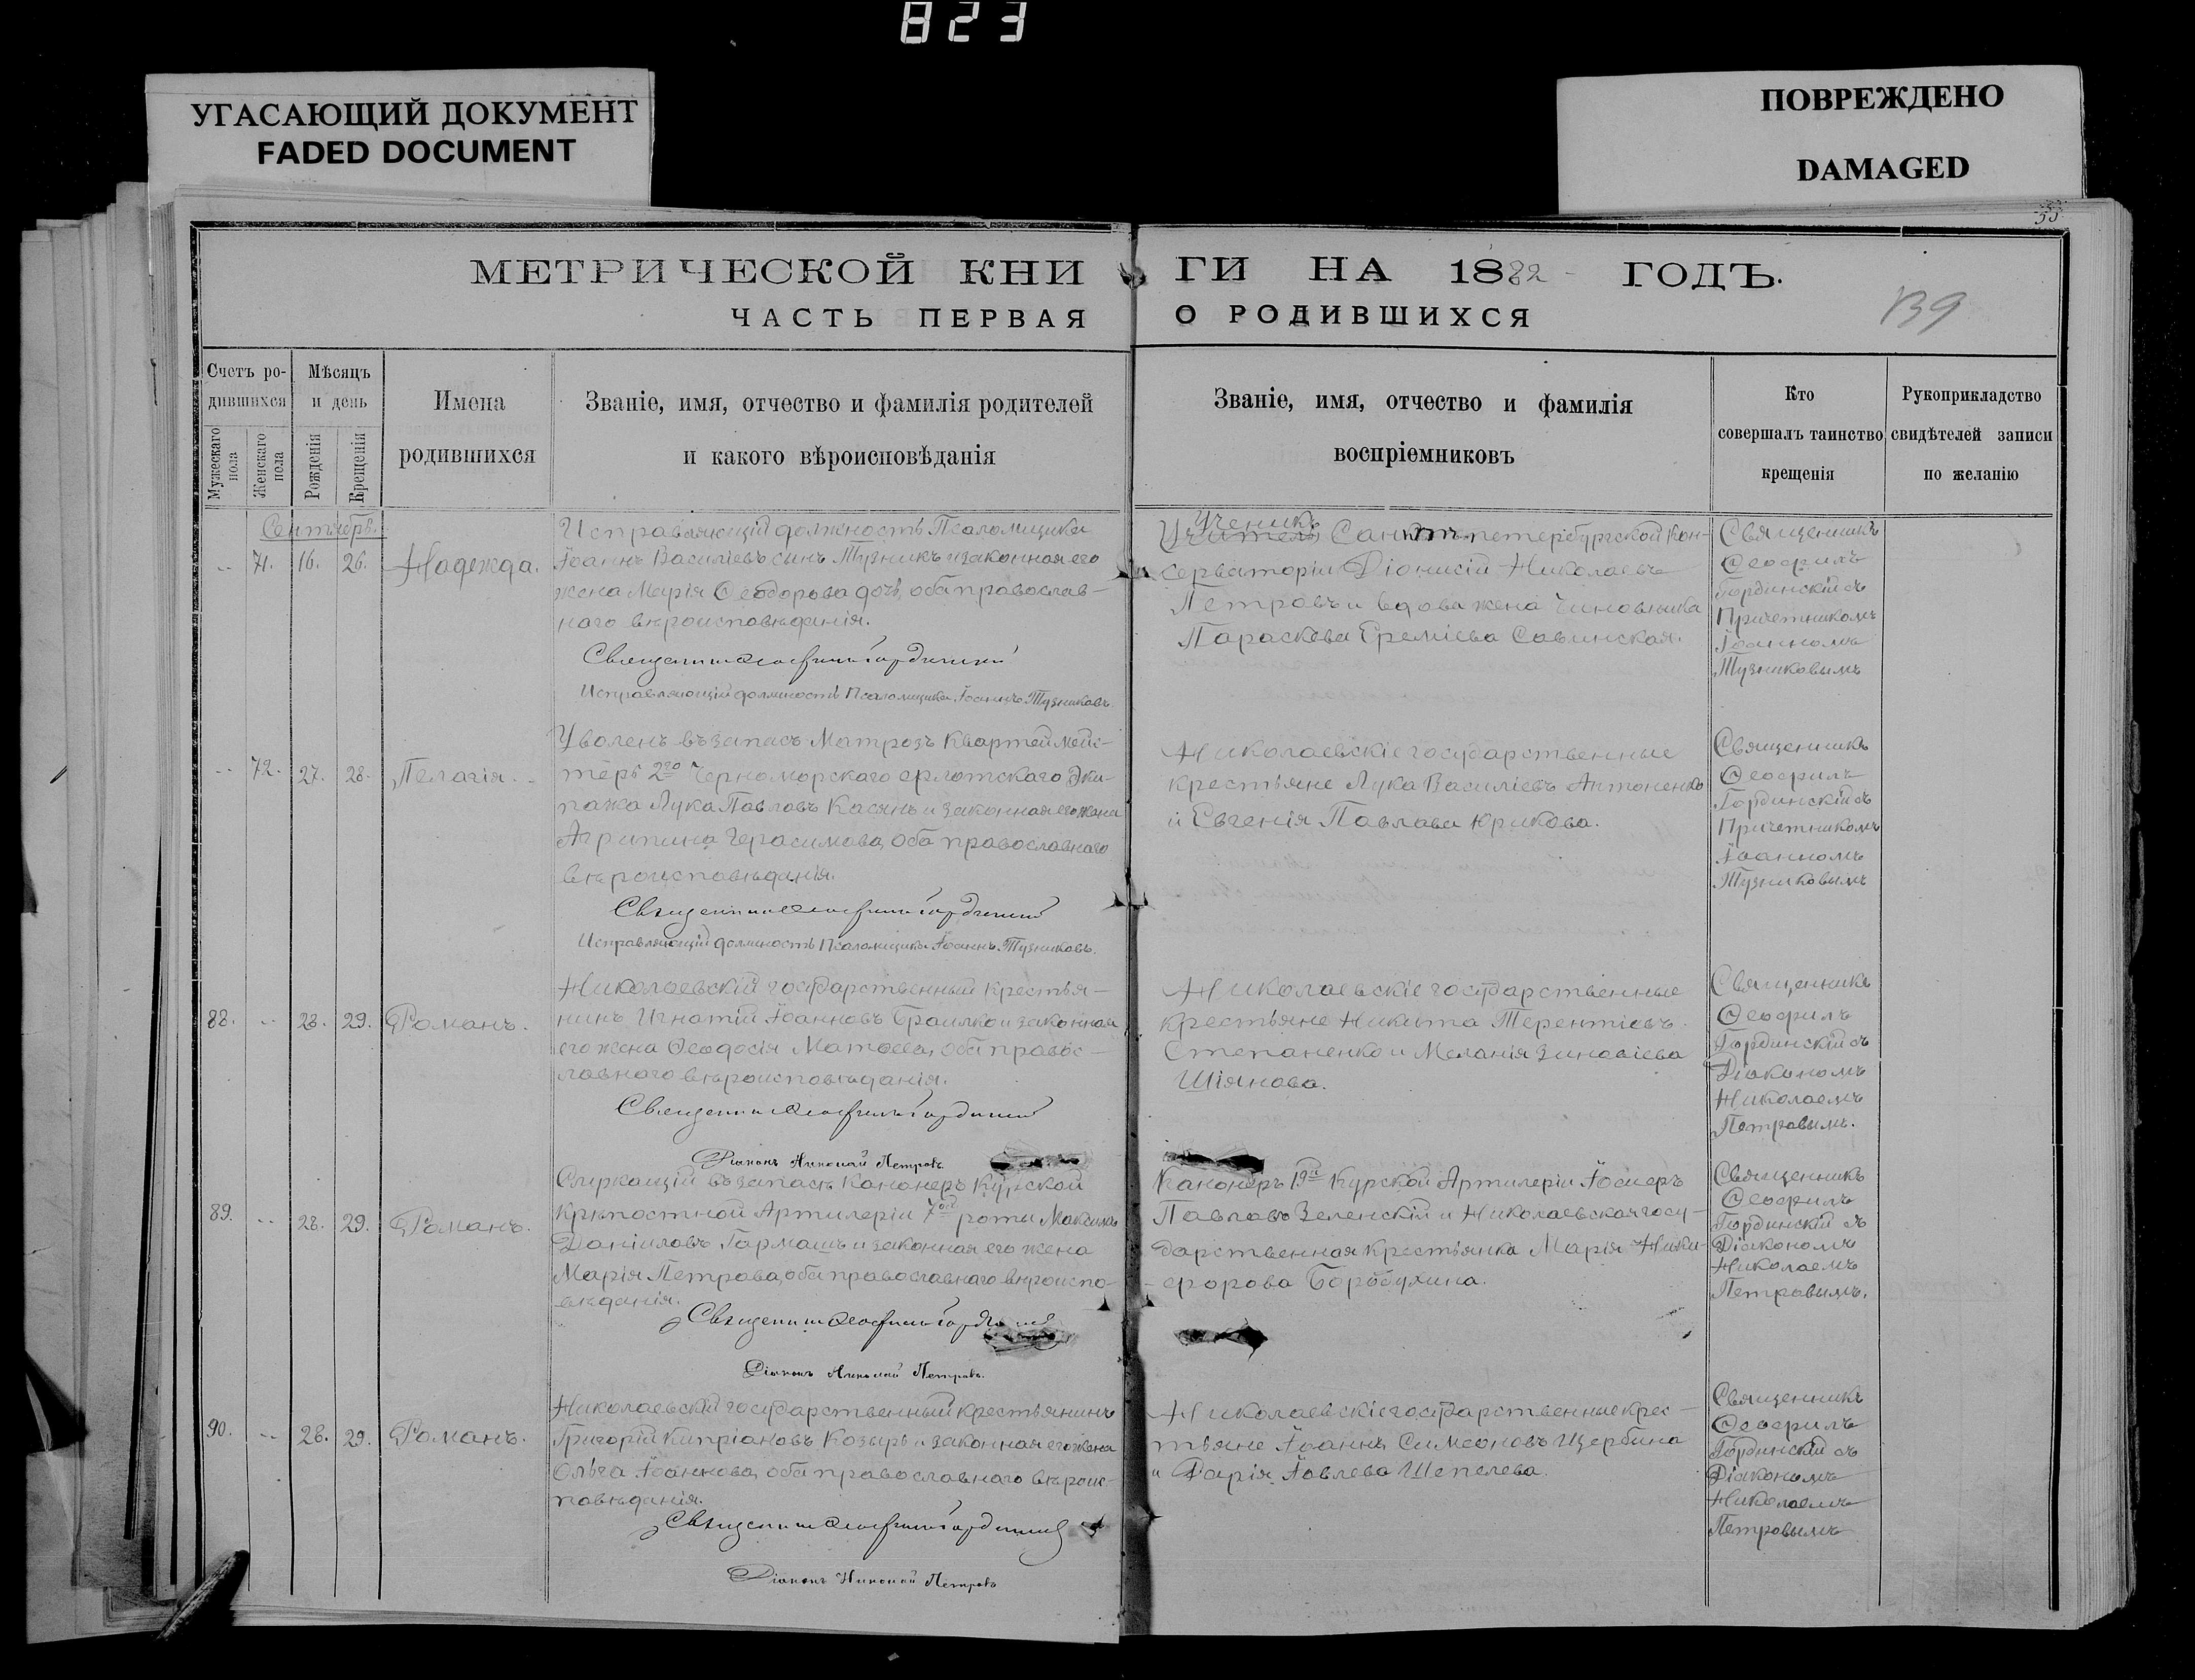 823
УГАСАЮЩИЙ ДОКУМЕНТ
FADED DOCUMENT
ПОВРЕЖДЕНО
DAMAGED
МЕТРИЧЕСКОЙ КНИ
ГИ НА 1882 ГОДЪ.
139
ЧАСТЬ ПЕРВАЯ
О РОДИВШИХСЯ
Счетъ ро-
дившихся
Мужескаго пола
Женскаго пола
Мѣсяцъ
и день
Рожденія
Крещенія
Имена
родившихся
Званіе, имя, отчество и фамилія родителей
и какого вѣроисповѣданія
Званіе, имя, отчество и фамилія
воспріемниковъ
Кто
совершалъ таинство
крещенія
Рукоприкладство
свидѣтелей записи
по желанію
Сентябрь.
71. 16. 26. Надежда.
Исправляющій должность Псаломщика
Іоаннъ Василіевъ сынъ Тузникъ и законная его
жена Марія Ѳеодорова дочь, оба православ-
наго вѣроисповѣданія.
Священникъ Ѳеофилъ Гординскій
Исправляющій должность Псаломщика Іоаннъ Тузниковъ.
Ученикъ
Учитель Санктъпетербургской Кон-
серваторіи Діонисій Николаевъ
Петровъ и вдова жена Чиновника
Параскева Ереміева Савинская.
Священникъ
Ѳеофилъ
Гординскій съ
Причетникомъ
Іоанномъ
Тузниковымъ
72. 27. 28. Пелагія.
Уволенъ въ запасъ Матрозъ Квартеймейс-
теръ 2го Черноморскаго флотскаго Эки-
пажа Лука Павловъ Касянъ и законная его жена
Агрипина Герасимова, оба православнаго
вѣроисповѣданія.
Священникъ Ѳеофилъ Гординскій
Исправляющій должность Псаломщика Іоаннъ Тузниковъ.
Николаевскіе государственные
крестьяне Лука Василіевъ Антоненко
и Евгенія Павлова Юрикова.
Священникъ
Ѳеофилъ
Гординскій съ
Причетникомъ
Іоанномъ
Тузниковымъ
88. 28. 29. Романъ.
Николаевскій государственный крестья-
нинъ Игнатій Іоанновъ Браилко и законная
его жена Ѳеодосія Матѳеева, оба правос-
лавнаго вѣроисповѣданія.
Священникъ Ѳеофилъ Гординскій
Діаконъ Николай Петровъ
Николаевскіе государственные
крестьяне Никита Терентіевъ
Степаненко и Меланія Зиновіева
Шіянова.
Священникъ
Ѳеофилъ
Гординскій съ
Діакономъ
Николаемъ
Петровымъ.
89. 28. 29. Романъ.
въ запасъ Канонеръ Курской
Крѣпостной Артилеріи 7ой роты Максимъ
Даніиловъ Гармашъ и законная его жена
Марія Петрова, оба православнаго вѣроиспо-
вѣданія.
Священникъ Ѳеофилъ Гординскій
Діаконъ Николай Петровъ.
Канонеръ Курской Артилеріи Іосифъ
Павловъ Зеленскій и Николаевская госу-
дарственная крестьянка Марія Ники-
форова Борбухина.
Священникъ
Ѳеофилъ
Гординскій съ
Діакономъ
Николаемъ
Петровымъ.
90. 28. 29. Романъ.
Николаевскій государственный крестьянинъ
Григорій Кипріановъ Козырь и законная его жена
Ольга Іоаннова, оба православнаго вѣроис-
повѣданія.
Священникъ Ѳеофилъ Гординскій
Діаконъ Николай Петровъ
Николаевскіе государственные крес-
тьяне Іоаннъ Симеоновъ Щербина
и Дарія Іовлева Шепелева.
Священникъ
Ѳеофилъ
Гординскій съ
Діакономъ
Николаемъ
Петровымъ